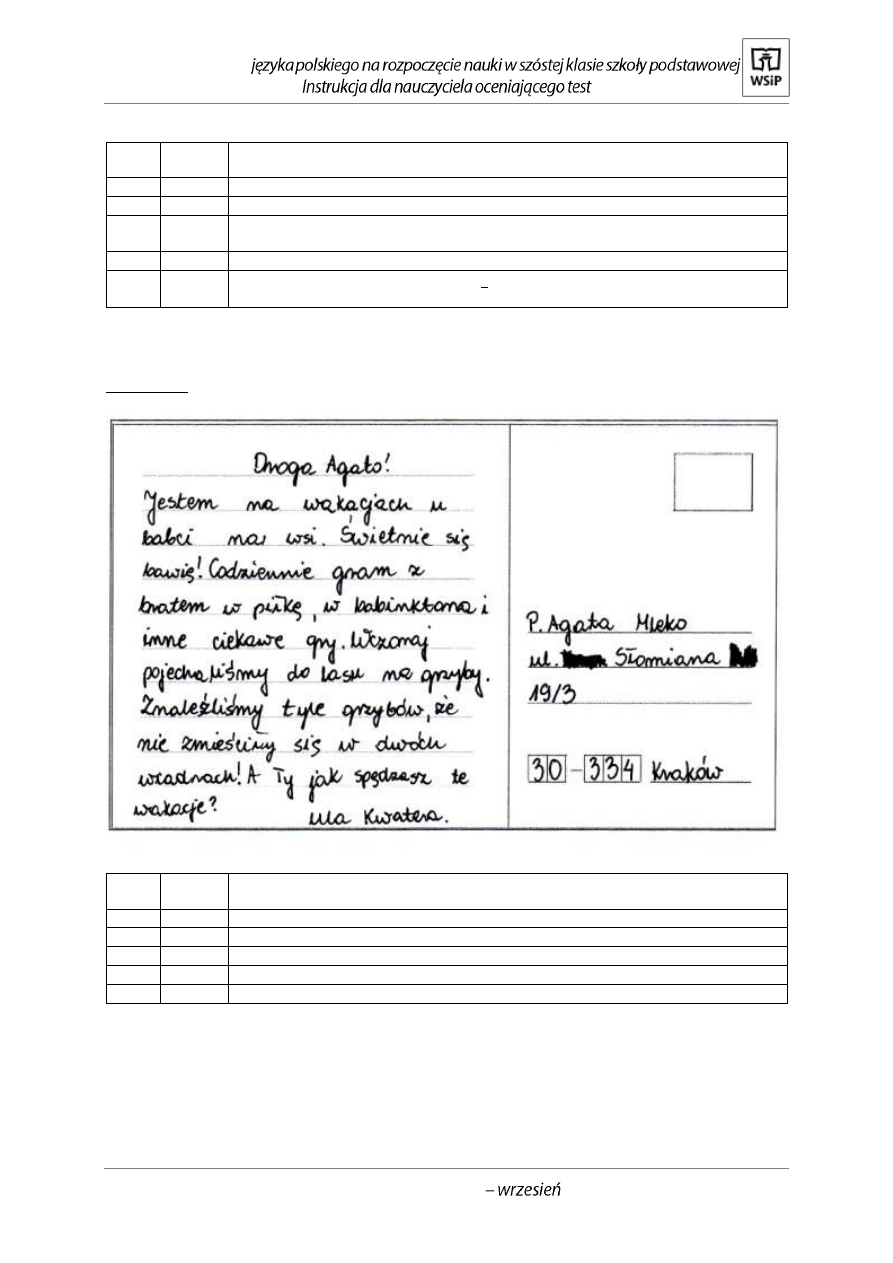 języka polskiego na rozpoczęcie nauki w szóstej klasie szkoły podstawowej
Instrukcja dla nauczyciela oceniającego test
WSiP
–
Droga Agato!
Jestem na wakacjach u
babci na wsi. Świetnie się
bawię! Codziennie gram z
bratem w piłkę, w babinktona i
inne ciekawe gry. Wczoraj
pojechaliśmy do lasu na grzyby.
Znaleźliśmy tyle grzybów, że
nie zmieściły się w dwóch
wiadrach! A Ty jak spędzasz te
wakacje?
Ula Kwatera.
P. Agata Mleko
ul. Słomiana
19/3
30-334 Kraków
– wrzesień